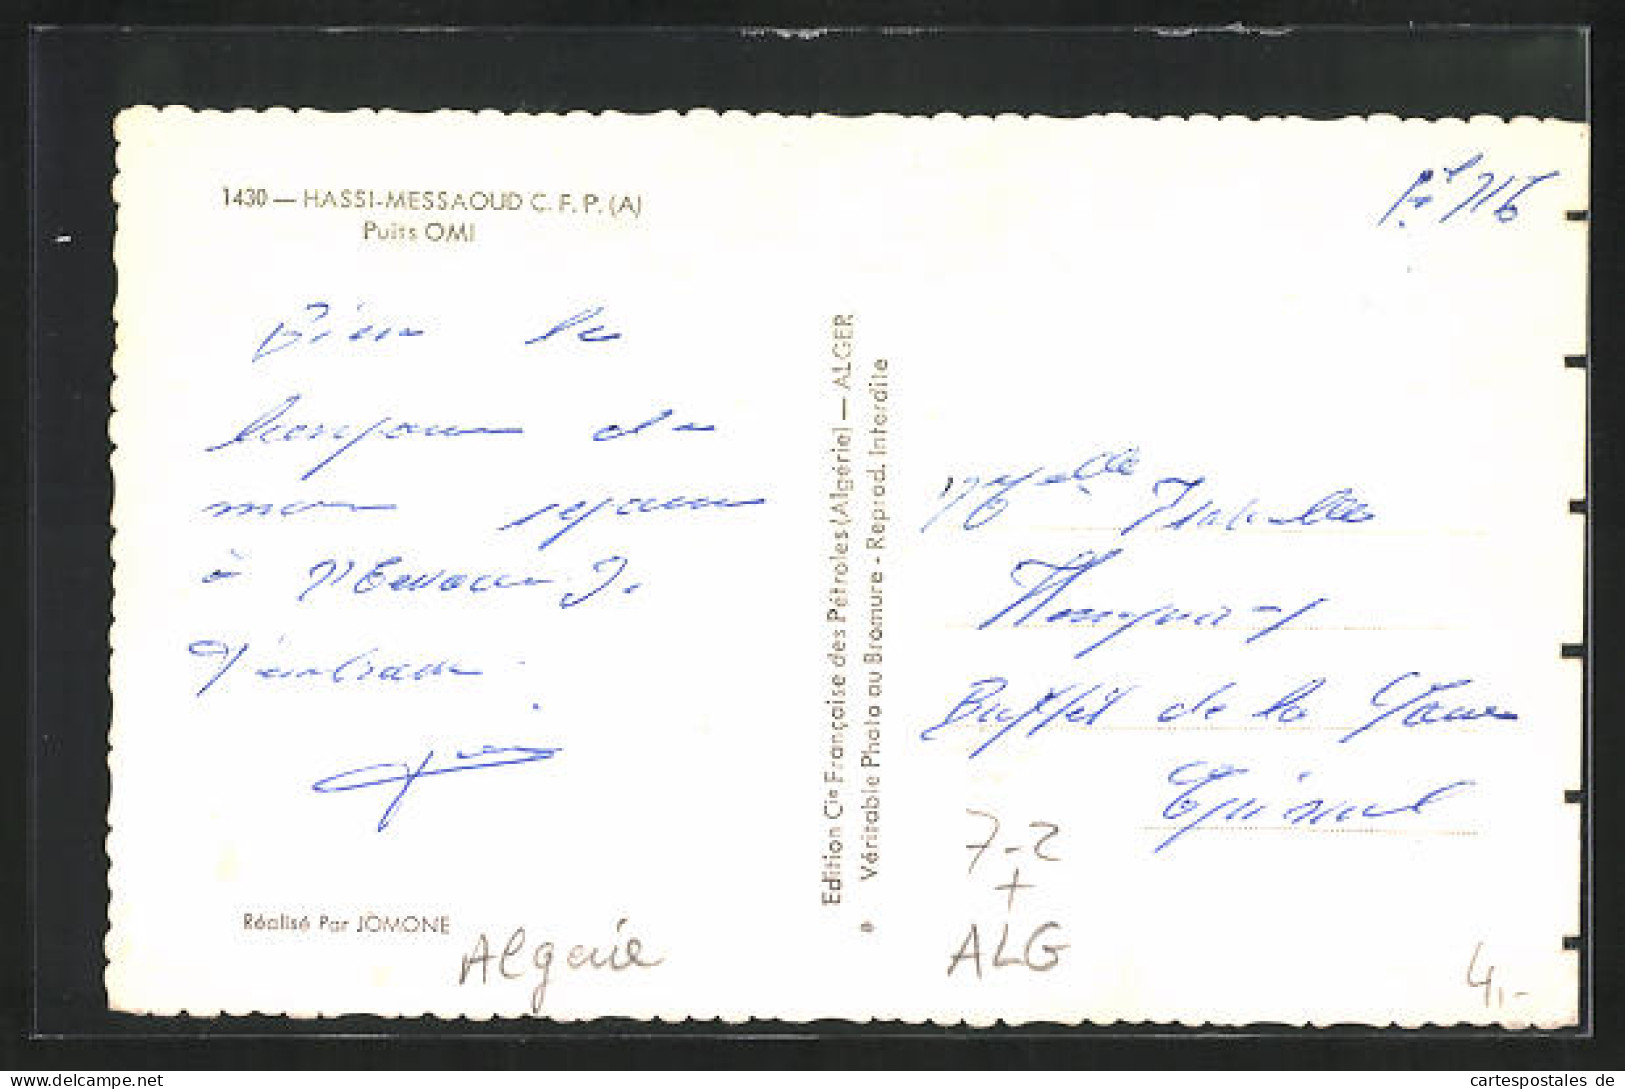 1430 — HASSI-MESSAOUD C. F. P. (A)
Puits OMI
Bien le
bonjour de
mon séjour
à Messaoud.
Réalisé Par JOMONE
Algerie
Edition Cie Française des Pétroles (Algérie) — ALGER
Véritable Photo au Bromure - Reprod. Interdite
Melle Isabelle
Buffet de la Gare
7-2
+
ALG
4,-
cartespostales de